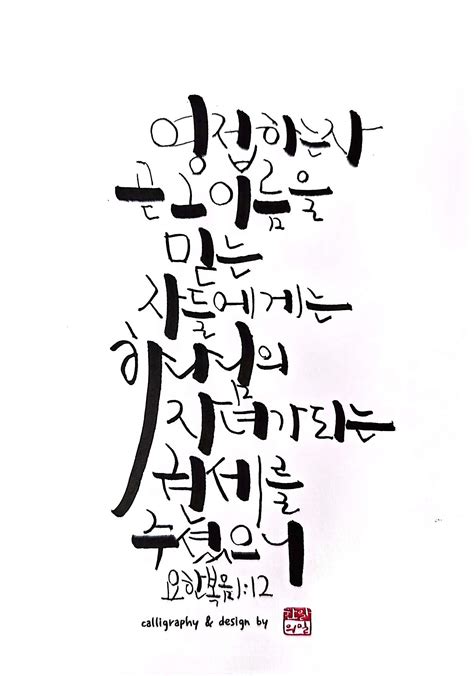 영접하는자
곧 그 이름을
믿는
자들에게는
하나님의
자녀가되는
권세를
주셨으니
요한복음1:12
calligraphy & design by